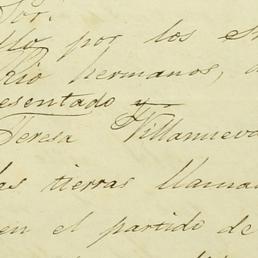 Sor.
llo por los
Rio hermanos,
esentado y
Teresa Villanueva
las tierras llama
en el partido de